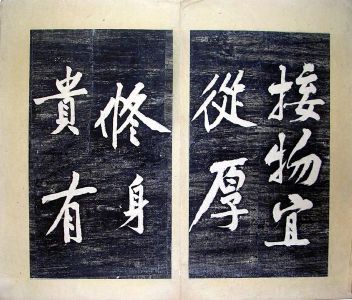 接物宜
從厚
修身
貴有